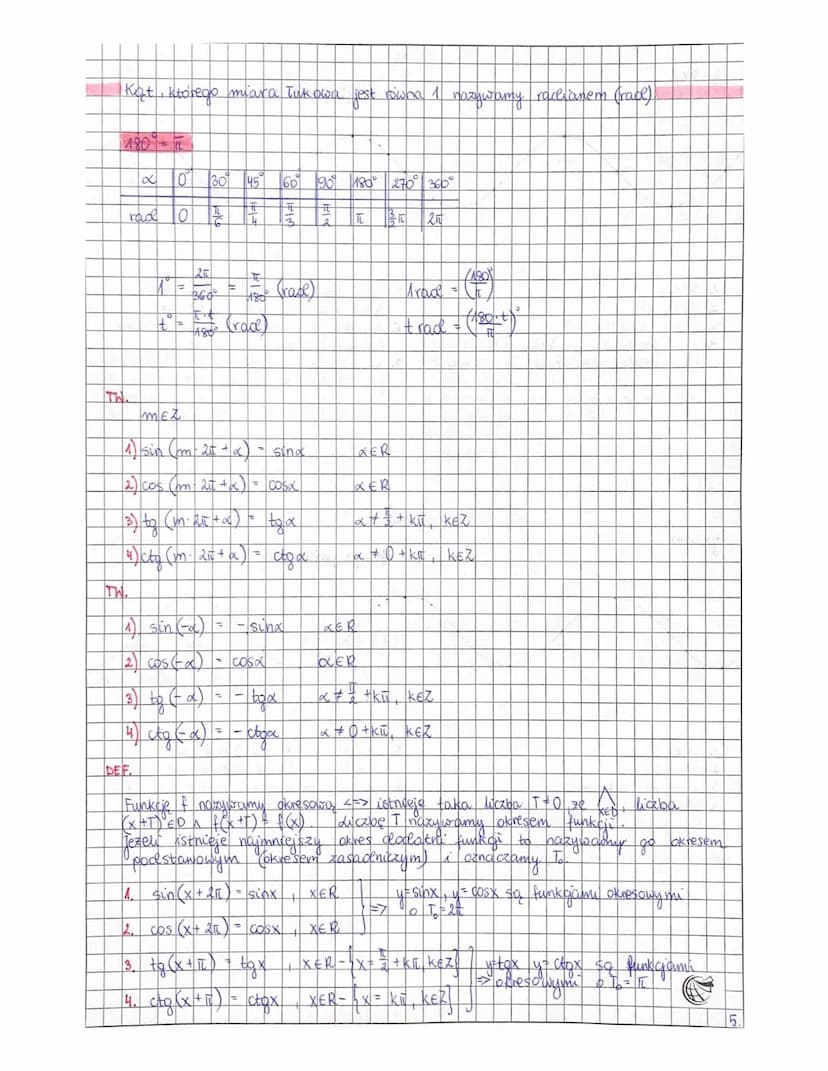 Kąt, którego miara łukowa jest równa 1 nazywamy radianem (rad)
180° = π
α 0° 30° 45° 60° 90° 180° 270° 360°
rad 0 π/6 π/4 π/3 π/2 π 3/2π 2π
1° = 2π/360° = π/180° (rad) 1 rad = (180/π)°
t° = π·t/180° (rad) t rad = (180·t/π)°
TW.
m∈Z
1) sin(m·2π+α) = sinα α∈R
2) cos(m·2π+α) = cosα α∈R
3) tg(m·2π+α) = tgα α≠π/2+kπ, k∈Z
4) ctg(m·2π+α) = ctgα α≠0+kπ, k∈Z
TW.
1) sin(-α) = -sinα α∈R
2) cos(-α) = cosα α∈R
3) tg(-α) = -tgα α≠π/2+kπ, k∈Z
4) ctg(-α) = -ctgα α≠0+kπ, k∈Z
DEF.
Funkcję f nazywamy okresową <=> istnieje taka liczba T≠0, że ⋀ x∈D, liczba
(x+T)∈D ∧ f(x+T) = f(x). Liczbę T nazywamy okresem funkcji.
Jeżeli istnieje najmniejszy okres dodatni funkcji to nazywamy go okresem
podstawowym (okresem zasadniczym) i oznaczamy T₀.
1. sin(x+2π) = sinx, x∈R
2. cos(x+2π) = cosx, x∈R
=> y=sinx, y=cosx są funkcjami okresowymi
o T₀=2π
3. tg(x+π) = tgx, x∈R-{x=π/2+kπ, k∈Z}
4. ctg(x+π) = ctgx, x∈R-{x=kπ, k∈Z}
y=tgx y=ctgx są funkcjami
=> okresowymi o T₀=π
5.